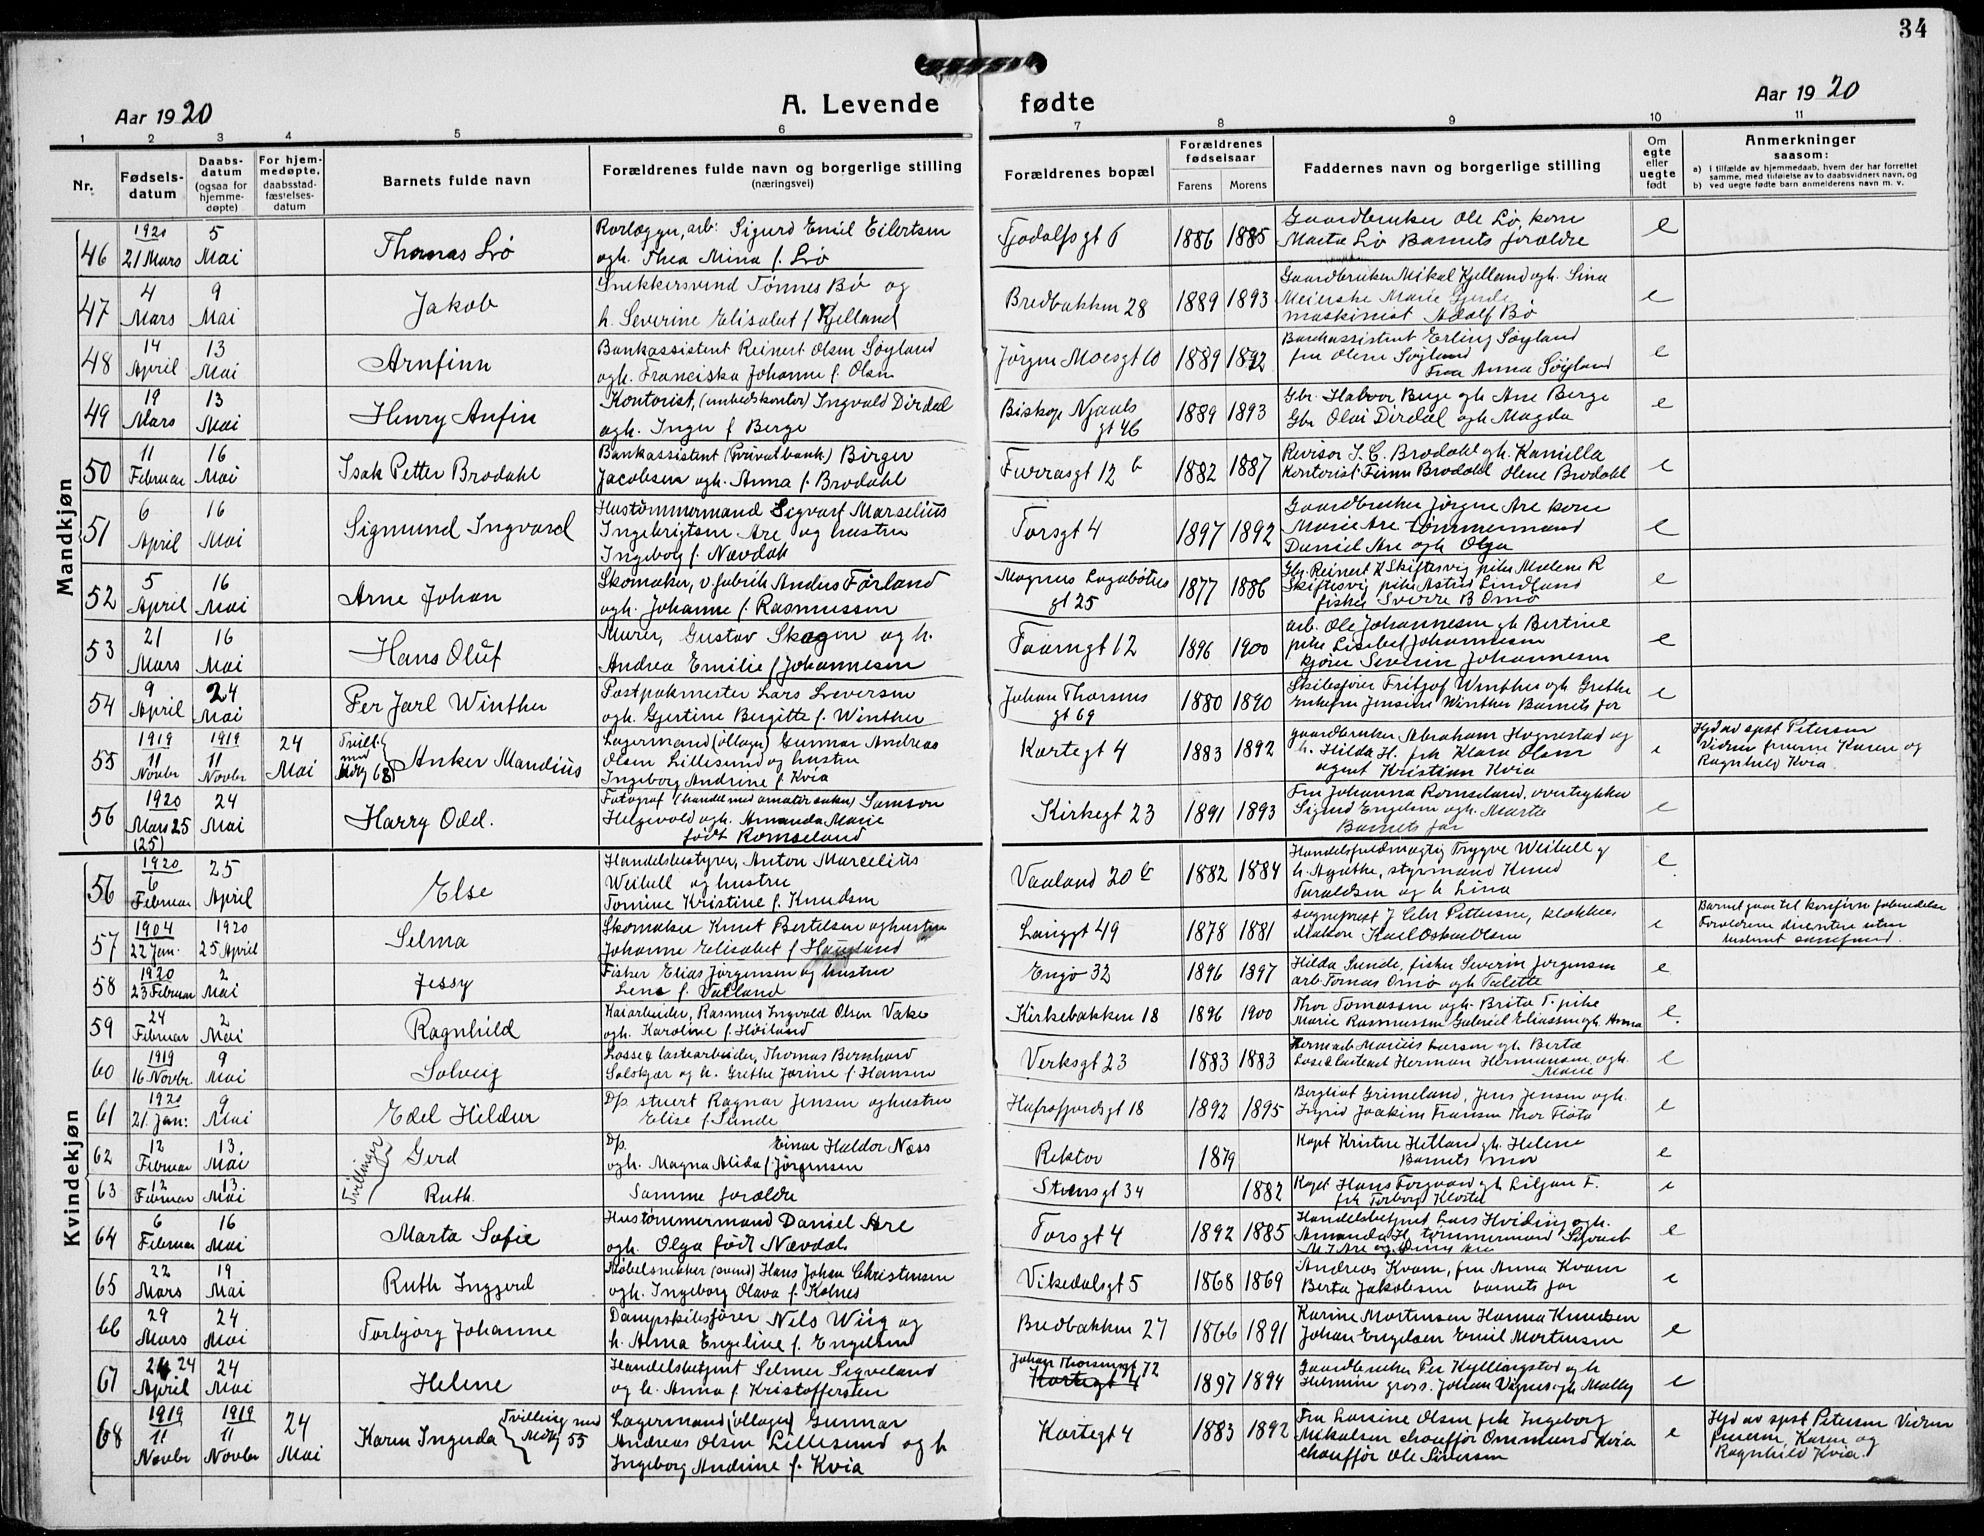 34
Aar 1920
A. Levende fødte
Aar 1920
1 2 3 4 5 6 7 8 9 10 11
Nr.
Fødsels-
datum
Daabs-
datum
(ogsaa for
hjemme-
døpte)
For hjem-
medøpte,
daabsstad-
fæstelses-
datum
Barnets fulde navn
Forældrenes fulde navn og borgerlige stilling
(næringsvei)
Forældrenes bopæl
Forældrenes
fødselsaar
Farens Morens
Faddernes navn og borgerlige stilling
Om
egte
eller
uegte
født
Anmerkninger
saasom:
a) i tilfælde av hjemmedaab, hvem der har forrettet
samme, med tilføielse av to daabsvidners navn, og
b) ved uegte fødte barn anmelderens navn m. v.
Mandkjøn
46 1920 21 Mars 5 Mai Thomas Lrø
Rørlægger, arb: Sigurd Emil Eilertsen
ogh. Thea Mina f. Lrø
Tjodolfsgt 6 1886 1885
Gaardbruker Ole Lrø, kone
Marta Lrø Barnets forældre
e
47 4 Mars 9 Mai Jakob
Snekkersvend Tønnes Bø og
h. Severine Elisabet f Kjelland
Bredbakken 28 1889 1893
Gaardbruker Mikal Kjelland ogh. Sina
Meierske Marie Gjerde
maskinist Adolf Bø
e
48 14 April 13 Mai Arnfinn
Bankassistent Reinert Olsen Søyland
ogh. Franciska Johanne f. Olsen
Jørgen Moesgt 10 1889 1892
Bankassistent Erling Søyland
fru Olene Søyland
Frøa Anna Søyland
e
49 19 Mars 13 Mai Henry Anfin
Kontorist, (embedskontor) Ingvald Dirdal
ogh. Inger f Berge
Biskop Njaals
gt 46 1889 1893
Gbr. Halvor Berge ogh Ane Berge
Gbr Olai Dirdal ogh Magda
e
50 11 Februar 16 Mai Isak Petter Brodahl
Bankassistent (Privatbank) Birger
Jacobsen ogh. Anna f. Brodahl
Furrasgt 12 b 1882 1887
Revisor I. C. Brodahl ogh. Kamilla
Kontorist Finn Brodahl Olene Brodahl
e
51 6 April 16 Mai Sigmund Ingvard
Hustømmermand Sigvart Marselius
Ingebrigtsen Are og hustru
Ingeborg f. Nævdal
Torsgt 4 1897 1892
Gaardbruker Jørgen Are kone
Marie Are tømmermand
Daniel Are ogh Olga
e
52 5 April 16 Mai Arne Johan
Skomaker, v. fabrik Anders Førland
ogh. Johanne f. Rasmussen
Magnus Lagabøtes
gt 25 1877 1886
Gbr. Reinert R Skiftesvig pike Malene R
Skiftesvig pike Astrid Lindland
fisker Sverre B Omø
e
53 21 Mars 16 Mai Hans Oluf
Murer, Gustav Skogen og h.
Andrea Emilie f Johannesen
Faarngt 12 1896 1900
arb. Ole Johannesen ogh Bertine
pike Lisabet Johannesen
kjører Severin Johannesen
e
54 9 April 24 Mai Per Jarl Winther
Postpakmester Lars Sivertsen
ogh. Gjertine Bergitte f. Winther
Johan Thorsens
gt 69 1880 1890
Skibsfører Fritjof Winther ogh Grethe
Enkefru Jensine Winther Barnets far
e
55 1919 11 Novbr 1919 11 Novbr 24 Mai
Tvill.
med
Mdkj 68
Anker Mandius
Lagermand (øllager) Gunnar Andreas
Olsen Lillesund og hustru
Ingeborg Andrine f Kvia
Kortegt 4 1883 1892
gaardbruker Abraham Hognestad og
h. Hilda H. frk Klara Olsen
agent Kristian Kvia
e
Hjd av spst Petersen
Vidner fruerne Karen og
Ragnhild Kvia
56 1920 Mars 25 (25) 24 Mai Harry Odd.
Fotograf (handel med amatørsaker) Samson
Helgevold ogh. Amanda Marie
født Romseland
Kirkegt 23 1891 1893
Fru Johanna Romseland, overtrykker
Sigurd Engelsen ogh. Marta
Barnets far
e
Kvindekjøn
56 1920 6 Februar 25 April Else
Handelsbestyrer, Anton Marcelius
Weibell og hustru
Tomine Kristine f Knudsen
Vaaland 20 b 1882 1884
Handelsfuldmægtig Trygve Weibell og
h. Agathe, styrmand Knud
Taraldsen og h Lina
e
57 1904 22 Jan. 1920 25 April Selma
Skomaker Knut Bertelsen og hustru
Johanne Elisabet f Haugland
Langgt 49 1878 1881
sogneprest J Chr Pettersen, klokker
Makon Karl Oskar Olsen
e
Barnet gaar til konfirm. forberedelse
Forældrene dissentere uten
bestemt samfund.
58 1920 23 Februar 2 Mai Jessy
Fisker Elias Jørgensen og hustru
Lene f. Tatland
Engø 32 1896 1897
Hilda Sunde, fisker Severin Jørgensen
arb Tomas Omø ogh Talette
e
59 24 Februar 2 Mai Ragnhild
Kaiarbeider, Rasmus Ingvald Olsen Vake
ogh. Karoline f. Høiland
Kirkebakken 18 1896 1900
Thor Tomassen ogh. Brita T. pike
Marie Rasmussen Gabriel Eliassen ogh Anna
e.
60 1919 16 Novbr 9 Mai Solveig
Losse & lastearbeider, Thomas Bernhard
Solskjær og h. Grethe Jørine f. Hansen
Verksgt 23 1883 1883
Marius Larsen ogh Berta
Herman Hermansen, ogh.
Marie
e
61 1920 21. Jan: 9 Mai Edel Hildur
Dp stuert Ragnar Jensen og hustru
Elise f. Sunde
Hafrsfjordsgt 18 1892 1895
Bergliot Grimeland, Jens Jensen ogh.
Ingrid Joakim Fransen Thor Fløtø
e
Tvillinger
62 12 Februar 13 Mai Gerd
Dp. Einar Haldor Næss
ogh. Magna Alida f. Jørgensen
Rektor 1879
Kapt Kristen Hetland ogh. Helene
Barnets mor
e
63 12 Februar 13 Mai Ruth.
Samme forældre
Steensgt 34 1882
Kapt Hans Torgvard ogh Liljan F.
frk Torborg Kloster
e
64 6 Februar 16 Mai Marta Sofie
Hustømmermand Daniel Are
ogh. Olga født Nævdal
Torsgt 4 1892 1885
Handelsbetjent Lars Hviding ogh.
Amanda H tømmermand Sigvart
M J Are og
e
65 22 Mars 19 Mai Ruth Inggerd
Møbelsnekker (svend) Hans Johan Christensen
ogh. Ingeborg Olava f. Kolnes
Vikedalsgt 5 1868 1869
Andreas Kvam, fru Anna Kvam
Berta Jakobsen barnets far
e
66 29 Mars 24 Mai Torbjørg Johanne
Dampskibsfører Nils Wiig og
h. Anna Engeline f. Engelsen
Bredbakken 27 1866 1891
Karine Mortensen Hanna Knudsen
Johan Engelsen Emil Mortensen
e
67 24 24 April 24 Mai Helene
Handelsbetjent Selmer Sigveland
og h. Anna f Kristoffersen
Johan Thorsensgt 72
Kortegt 4 1897 1894
Gaardbruker Per Kyllingstad og h
Hermine gross. Johan Vignes ogh Mally
e
68 1919 11 Novbr 1919 11 Novbr 24 Mai Karen Ingerda
Tvilling med
Mdkj 55
Lagermand (øllager) Gunnar
Andreas Olsen Lillesund og h
Ingeborg Andrine f. Kvia
Kortegt 4 1883 1892
Fru Lovine Olsen frk Ingeborg
Mikalsen chauffør Ommund Kvia
chauffør Ole Sivertsen
e
Hjd av spst Petersen Vidner
fruerne Karen og
Ragnhild Kvia.